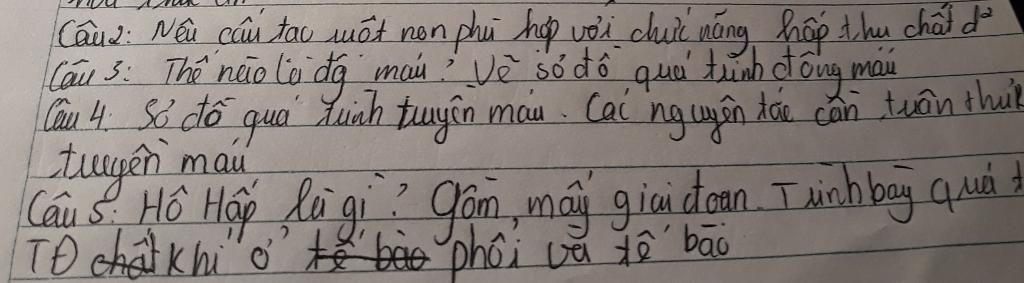 Câu2: Nêu cấu tạo ruột non phù hợp với chức năng hấp thu chất d²
Câu 3: Thế nào là đg máu? Vẽ sơ đồ quá trình đông máu
Câu 4. Sơ đồ quá trình truyền máu. Các nguyên tắc cần tuân thủ k
truyền máu
Câu 5: Hô Hấp là gì? gồm mấy giai đoạn. Trình bày quá t
TĐ chất khí ở tế bào phổi và tế bào